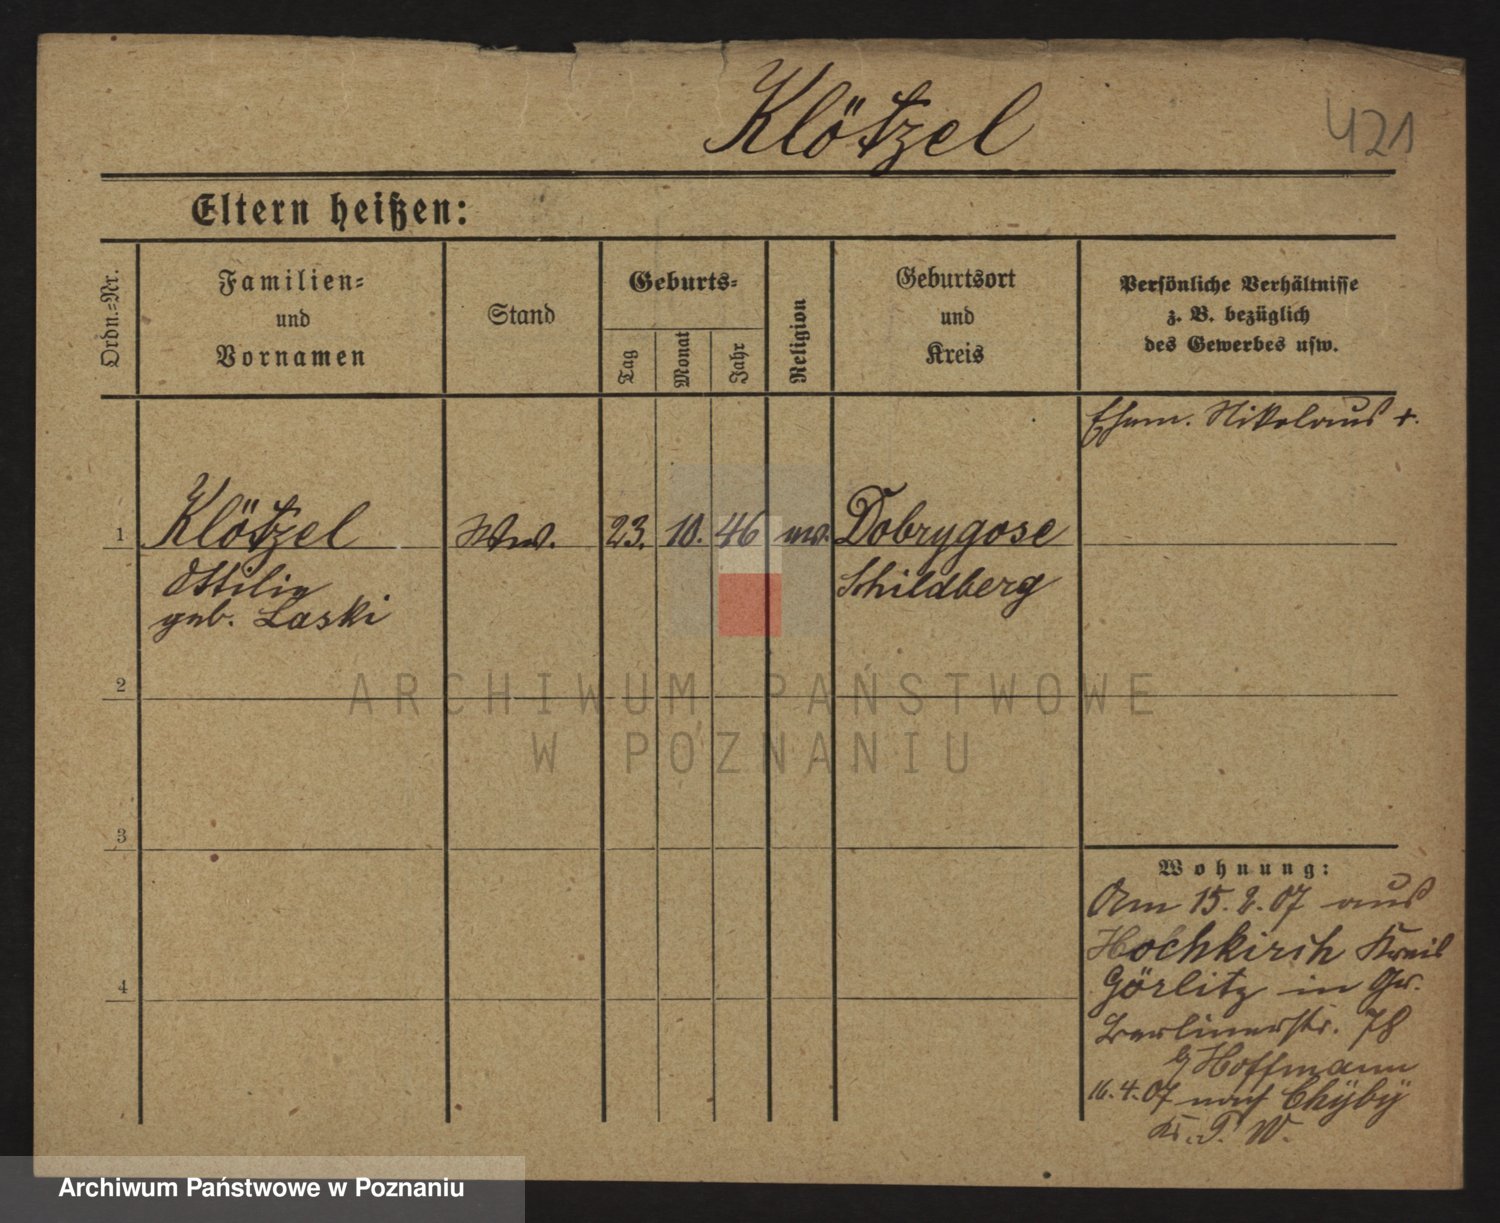 Klötzel
421
Eltern heißen:
Ordn.=Nr.
Familien=
und
Vornamen
Stand
Geburts=
Tag
Monat
Jahr
Religion
Geburtsort
und
Kreis
Persönliche Verhältnisse
z. B. bezüglich
des Gewerbes usw.
Ehem. Nikolaus +.
1 Klötzel Ww. 23. 10. 46 ev. Dobrygose
Ottilie Schildberg
geb. Laski
2
3
4
Wohnung:
Am 15.2.07 aus
Hochkirch Kreis
Görlitz in Gr.
Berlinerstr. 78
b/ Hoffmann
16.4.07 nach Chÿbÿ
Kr. P. W.
ARCHIWUM PAŃSTWOWE
W POZNANIU
Archiwum Państwowe w Poznaniu